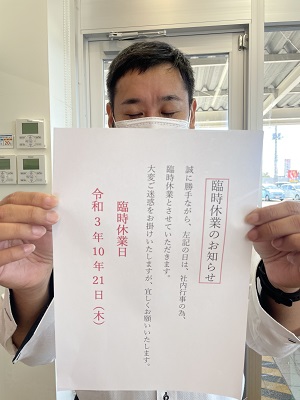 臨時休業のお知らせ
誠に勝手ながら、左記の日は、社内行事の為、
臨時休業とさせていただきます。
大変ご迷惑をお掛けいたしますが、宜しくお願いいたします。
臨時休業日
令和3年10月21日(木)